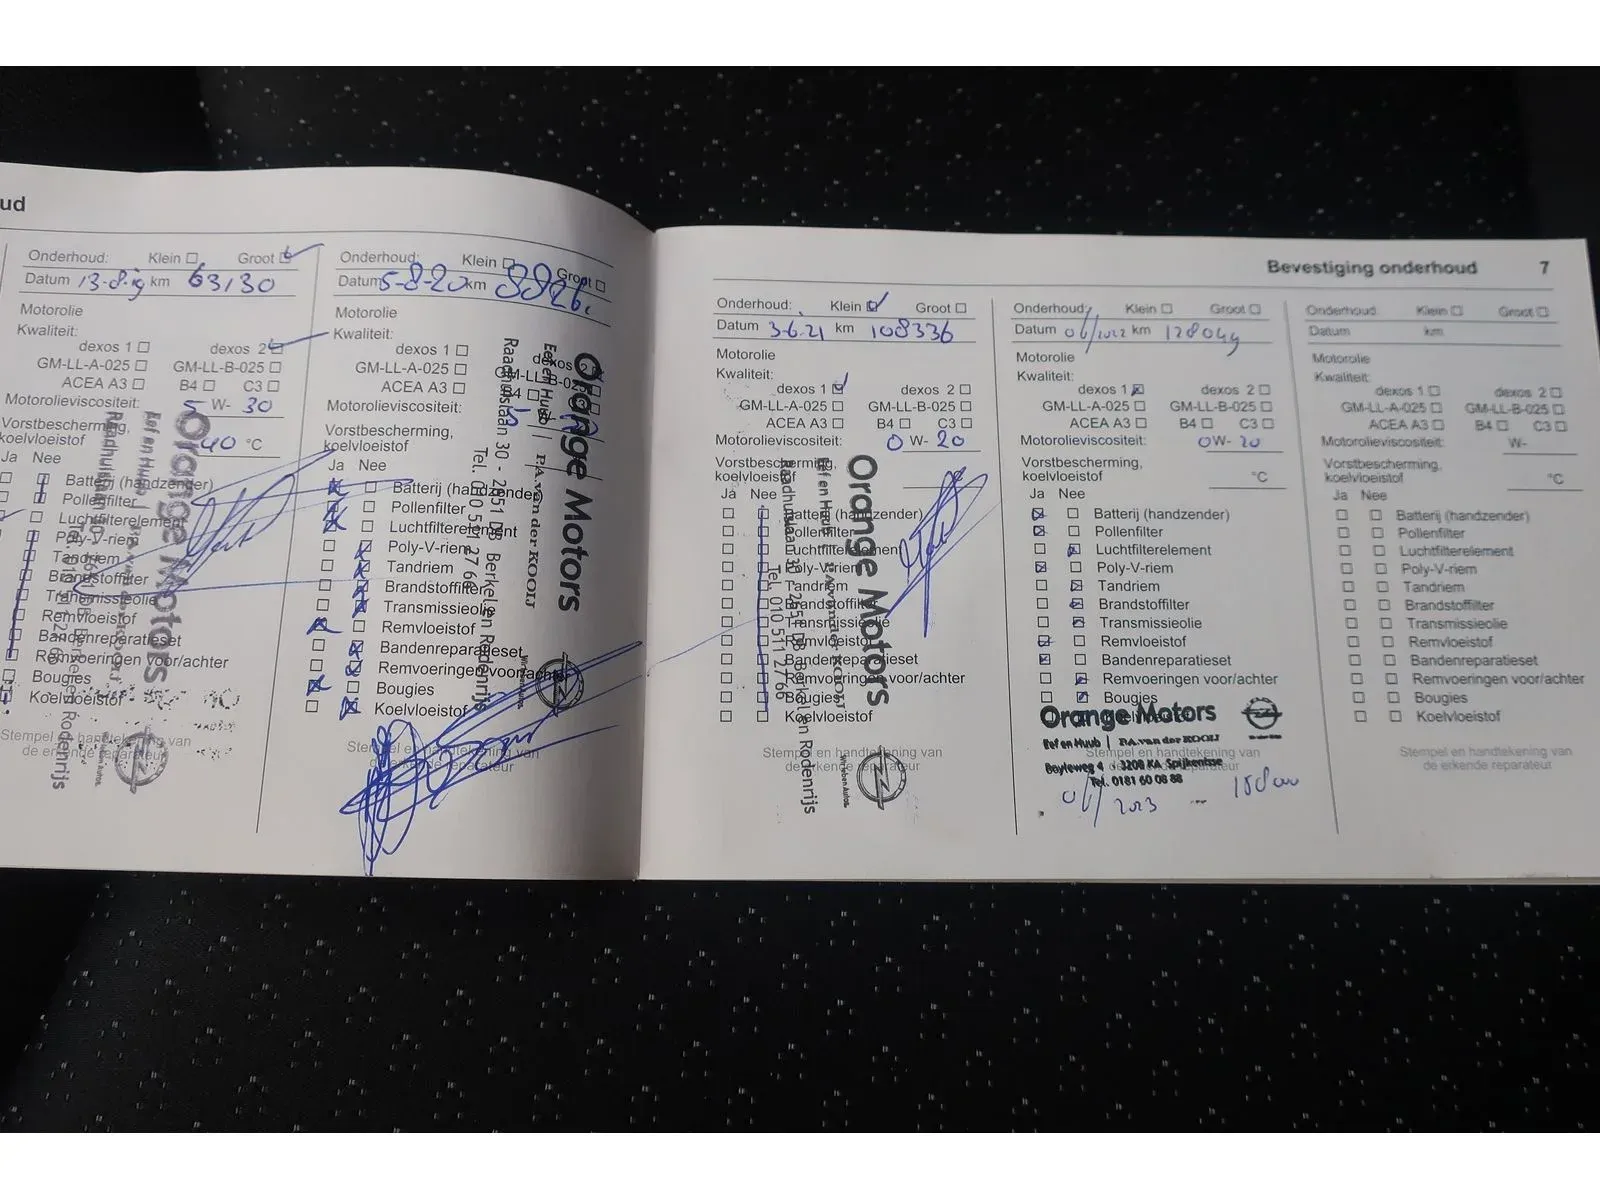 ud
Onderhoud: Klein Groot
Datum 13-8-19 km 63130
Motorolie
Kwaliteit:
dexos 1 dexos 2
GM-LL-A-025 GM-LL-B-025
ACEA A3 B4 C3
Motorolieviscositeit:
5 W- 30
Vorstbescherming,
koelvloeistof -40 °C
Ja Nee
Batterij (handzender)
Pollenfilter
Luchtfilterelement
Poly-V-riem
Tandriem
Brandstoffilter
Transmissieolie
Remvloeistof
Bandenreparatieset
Remvoeringen voor/achter
Bougies
Koelvloeistof
Stempel en handtekening van
de erkende reparateur
Orange Motors
Eef en Huub
Onderhoud: Klein Groot
Datum 5-8-20 km
Motorolie
Kwaliteit:
dexos 1 dexos 2
GM-LL-A-025 GM-LL-B-025
ACEA A3 B4
Motorolieviscositeit:
Vorstbescherming,
koelvloeistof
Ja Nee
Batterij (handzender)
Pollenfilter
Luchtfilterelement
Poly-V-riem
Tandriem
Brandstoffilter
Transmissieolie
Remvloeistof
Bandenreparatieset
Remvoeringen voor/achter
Bougies
Koelvloeistof
Stempel en handtekening van
de erkende reparateur
Orange Motors
Eef en Huub | P.A. van der KOOIJ
Raadhuislaan 30 - 2651 DB Berkel en Rodenrijs
Tel. 010 511 27 66
Bevestiging onderhoud 7
Onderhoud: Klein Groot
Datum 3-6-21 km 108336
Motorolie
Kwaliteit:
dexos 1 dexos 2
GM-LL-A-025 GM-LL-B-025
ACEA A3 B4 C3
Motorolieviscositeit: 0 W- 20
Vorstbescherming,
koelvloeistof °C
Ja Nee
Batterij (handzender)
Pollenfilter
Luchtfilterelement
Poly-V-riem
Tandriem
Brandstoffilter
Transmissieolie
Remvloeistof
Bandenreparatieset
Remvoeringen voor/achter
Bougies
Koelvloeistof
Stempel en handtekening van
de erkende reparateur
Orange Motors
Eef en Huub | P.A. van der KOOIJ
Raadhuislaan 30 - 2651 DB Berkel en Rodenrijs
Tel. 010 511 27 66
Onderhoud: Klein Groot
Datum 06/2022 km 128049
Motorolie
Kwaliteit:
dexos 1 dexos 2
GM-LL-A-025 GM-LL-B-025
ACEA A3 B4 C3
Motorolieviscositeit: 0 W- 20
Vorstbescherming,
koelvloeistof °C
Ja Nee
Batterij (handzender)
Pollenfilter
Luchtfilterelement
Poly-V-riem
Tandriem
Brandstoffilter
Transmissieolie
Remvloeistof
Bandenreparatieset
Remvoeringen voor/achter
Bougies
Koelvloeistof
Orange Motors
Eef en Huub | P.A. van der KOOIJ
Stempel en handtekening van
de erkende reparateur
Bayleweg 4 - 3208 KA Spijkenisse
Tel. 0181 60 08 88
06/2023 - 158000
Onderhoud: Klein Groot
Datum km
Motorolie
Kwaliteit:
dexos 1 dexos 2
GM-LL-A-025 GM-LL-B-025
ACEA A3 B4 C3
Motorolieviscositeit: W-
Vorstbescherming,
koelvloeistof °C
Ja Nee
Batterij (handzender)
Pollenfilter
Luchtfilterelement
Poly-V-riem
Tandriem
Brandstoffilter
Transmissieolie
Remvloeistof
Bandenreparatieset
Remvoeringen voor/achter
Bougies
Koelvloeistof
Stempel en handtekening van
de erkende reparateur